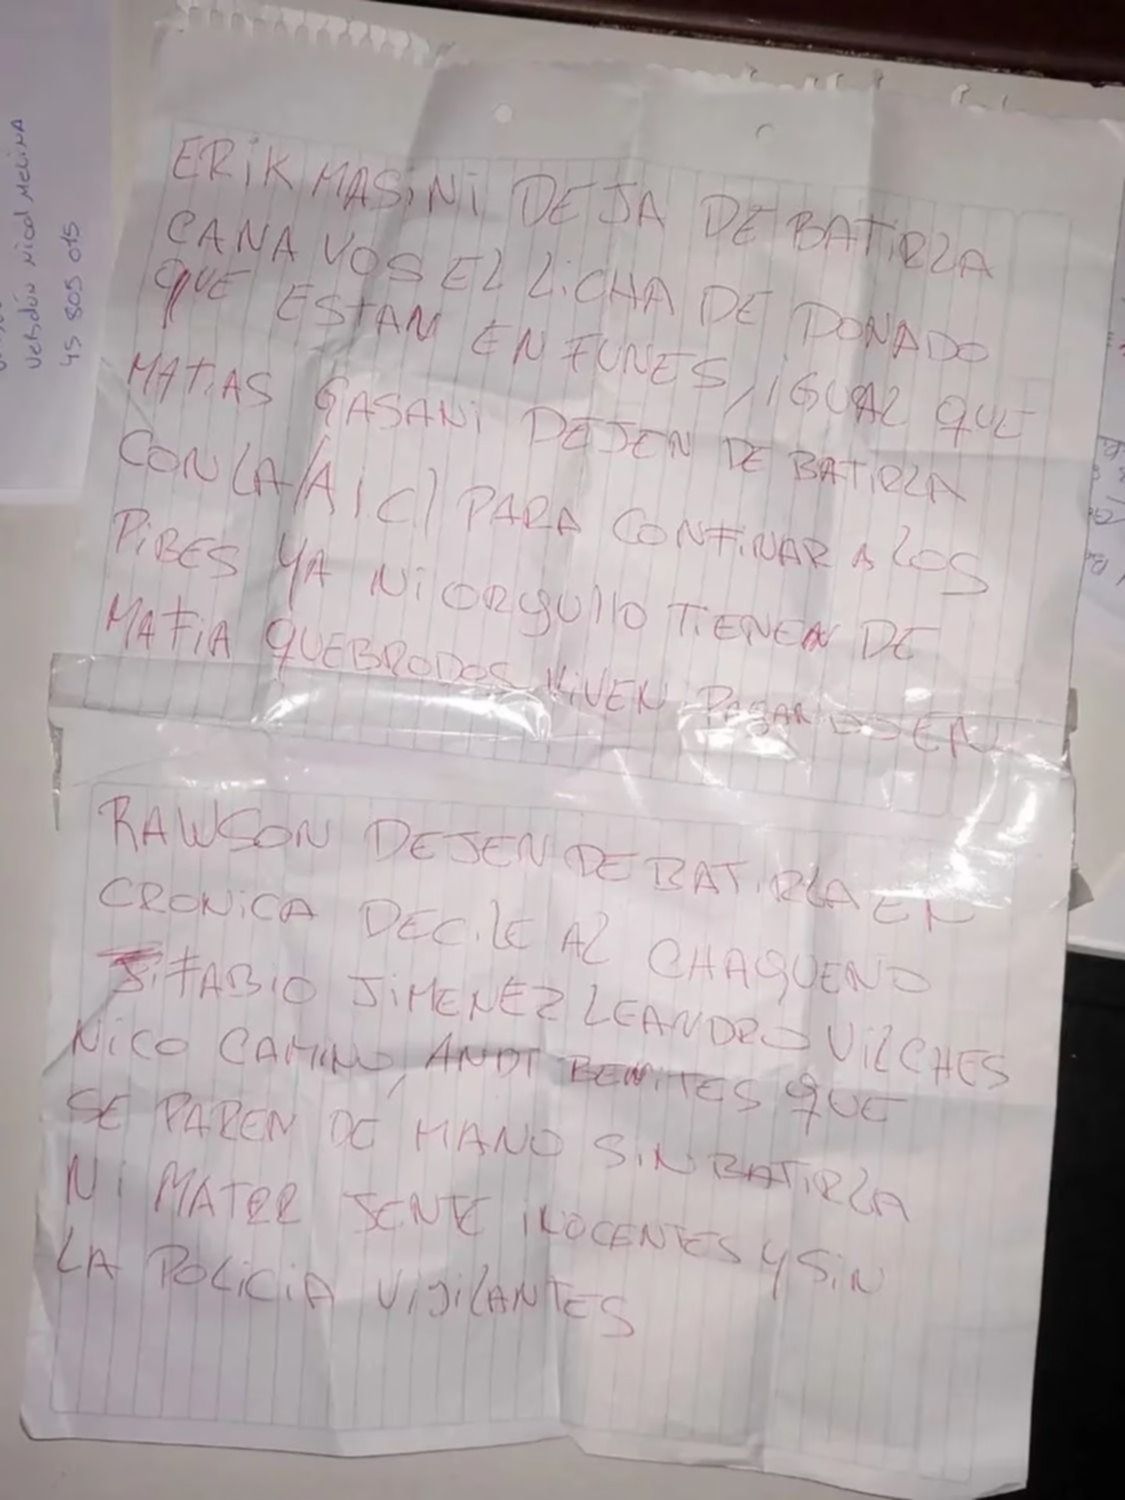 Verdún Nicol Melina
45 805 015
ERiK MASiNi DEJA DE BATiRLA
CANA VOS EL LiCHA DE DONADO
QUE ESTAN EN FUNES, iGUAL QUE
MATiAS GASANi DEJEN DE BATiRLA
CON LA (AiC) PARA CONFiNAR A LOS
PiBES YA Ni ORgullO TiENEN DE
MAFiA QUEBRODOS ViVEN PAGANDO EN
RAWSON DEJEN DE BATiRLA EN
CRONiCA DECiLE AL CHAQUENO
FABIO JiMENEZ LEANDRO ViLCHES
NiCO CAMiNO, ANDI BENITES QUE
SE PAREN DE MANO SiN BATiRLA
Ni MATRR JENTE iNOCENTES y SiN
LA POLiCiA ViJiLANTES